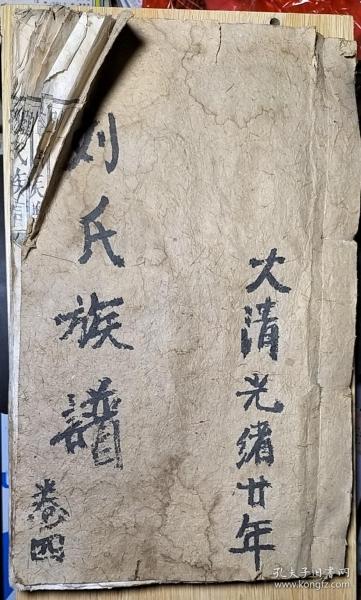 大清光绪廿年
刘氏族譜
卷四
孔夫子旧书网
www.kongfz.com